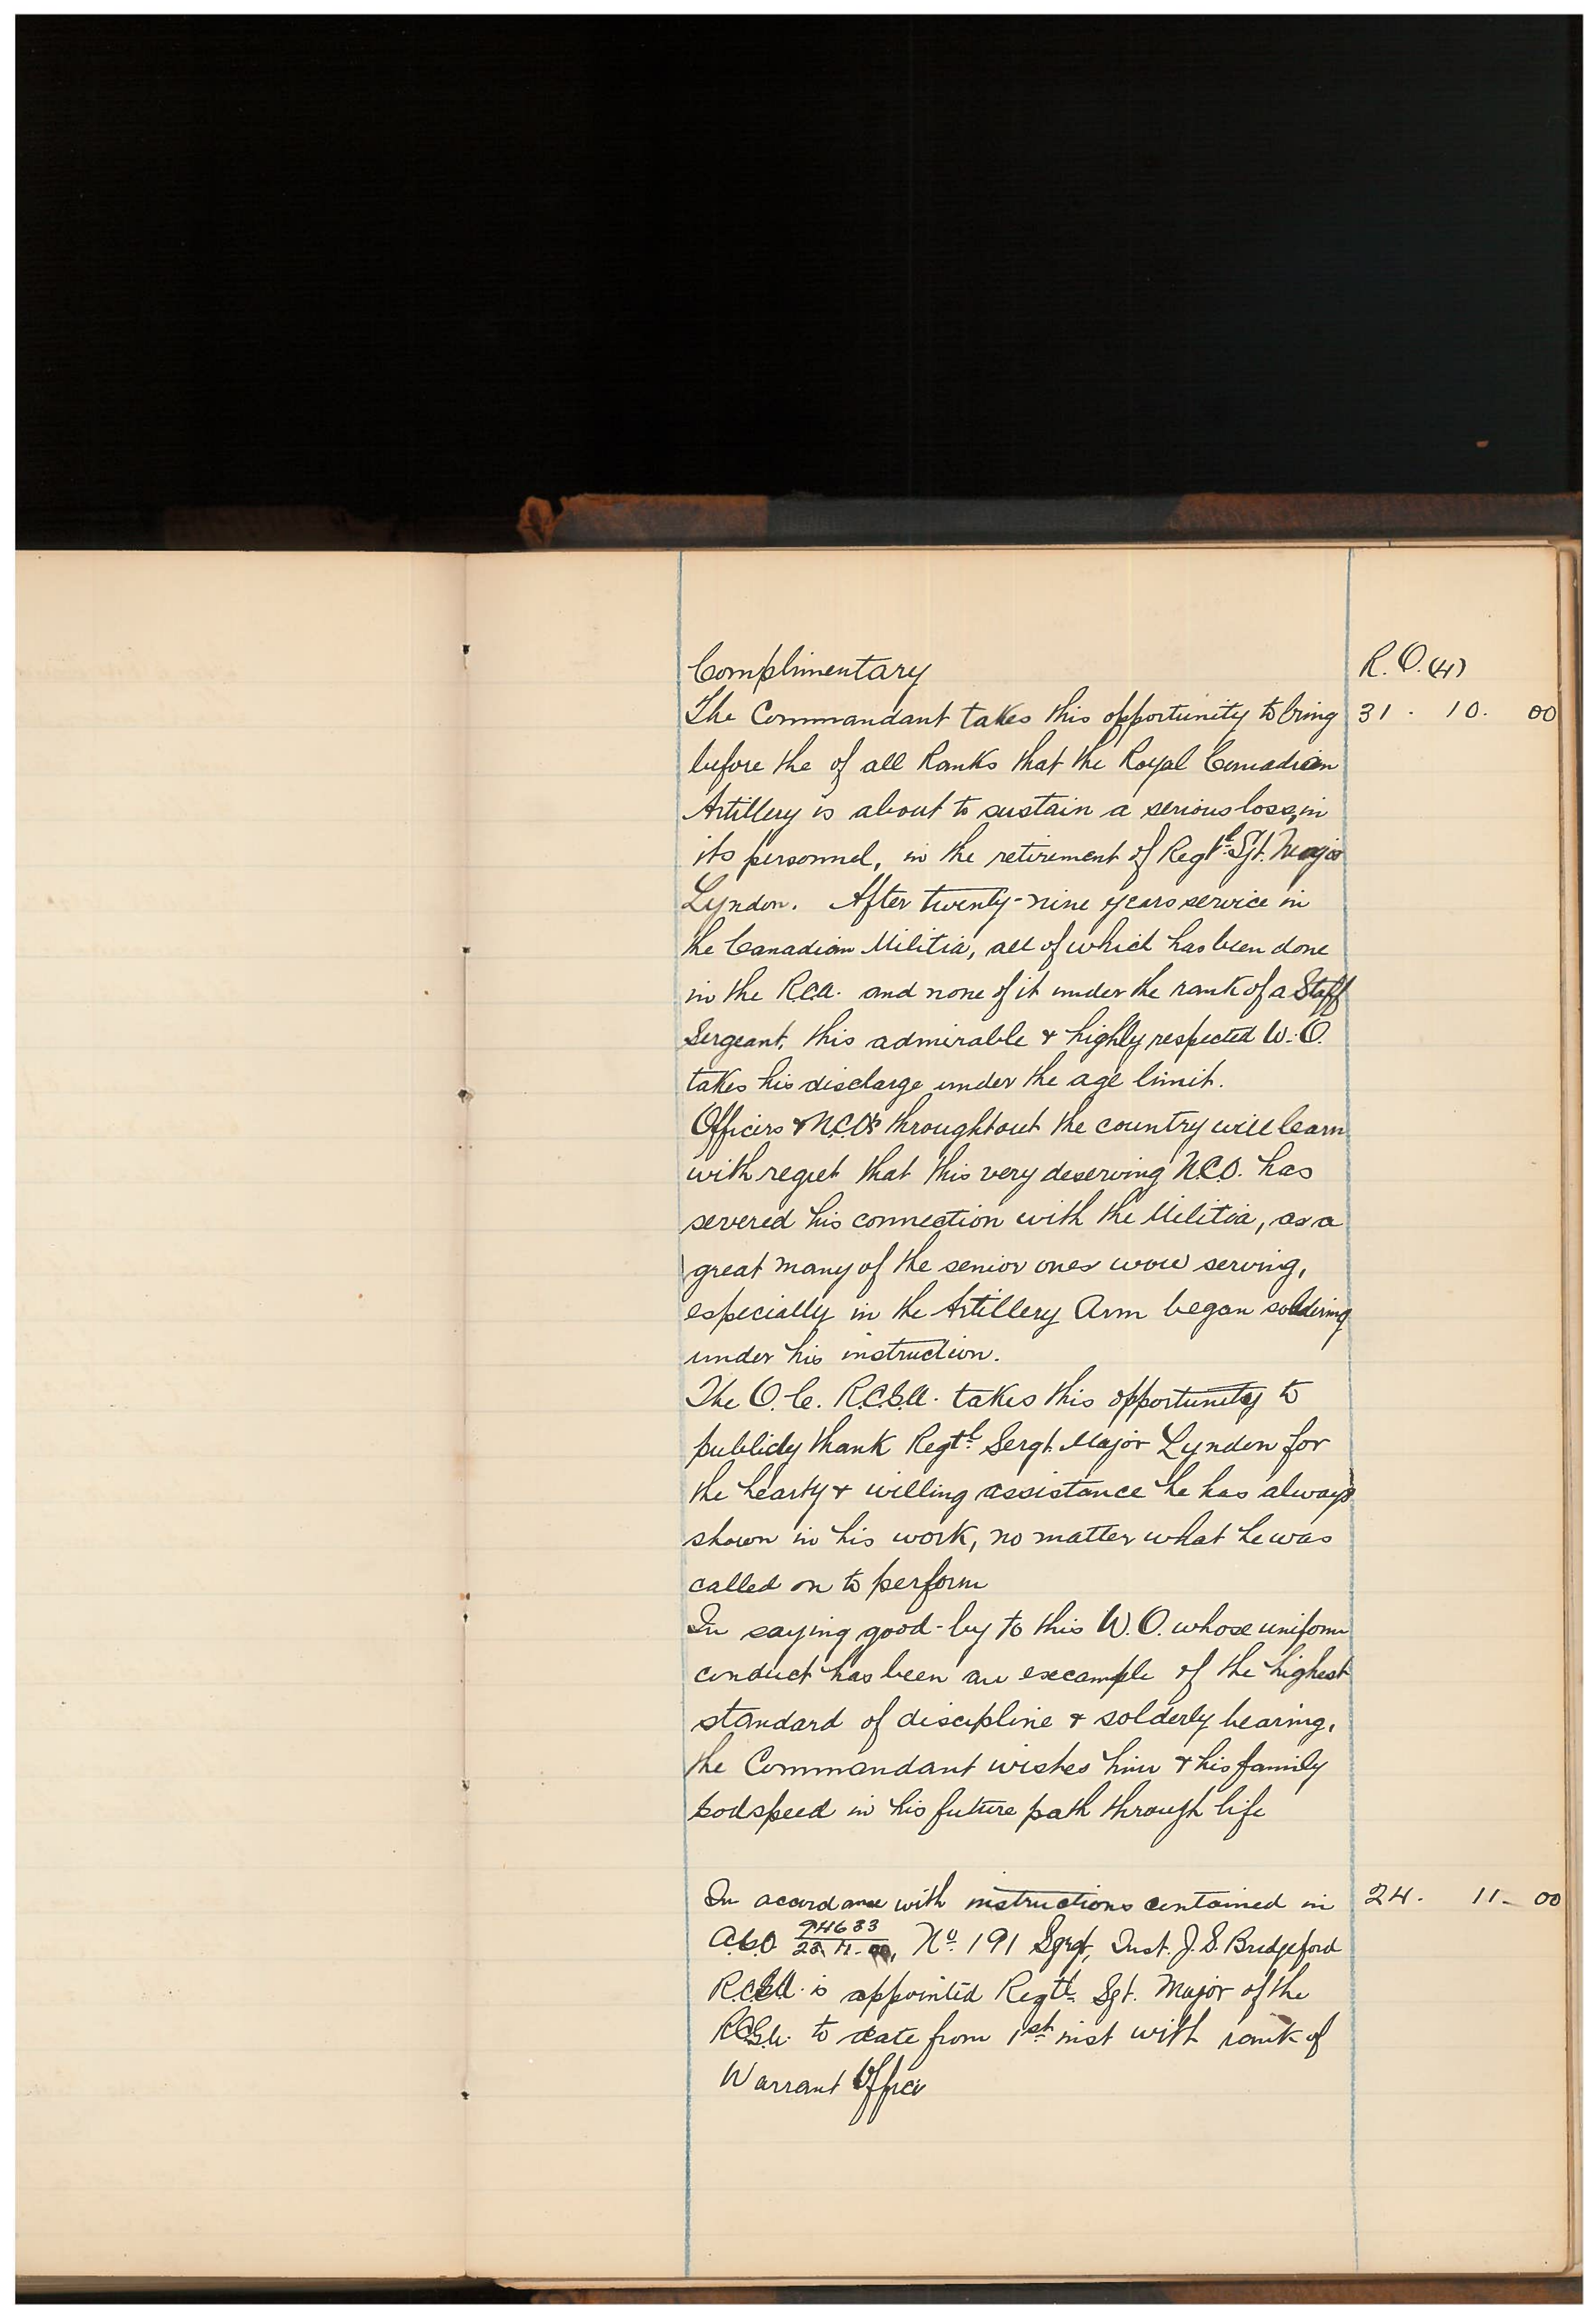 Complimentary R.O. (4)
The Commandant takes this opportunity to bring 31 . 10. 00
before the of all Ranks that the Royal Canadian
Artillery is about to sustain a serious loss, in
its personnel, in the retirement of Regtl. Sgt. Major
Lyndon. After twenty-nine years service in
the Canadian Militia, all of which has been done
in the R.C.A. and none of it under the rank of a Staff
Sergeant, this admirable & highly respected W.O.
takes his discharge under the age limit.
Officers & N.C.O's throughtout the country will learn
with regret that this very deserving N.C.O. has
severed his connection with the Militia, as a
great many of the senior ones serving,
especially in the Artillery Arm began soldering
under his instruction.
The O.C. R.C.G.A. takes this opportunity to
publicly thank Regtl. Sergt. Major Lyndon for
the hearty & willing assistance he has always
shown in his work, no matter what he was
called on to perform
In saying good-by to this W.O. whose uniform
conduct has been an excample of the highest
standard of discipline & solderly bearing,
the Commandant wishes him & his family
Godspeed in his future path through life
In accordance with instructions contained in 24. 11- 00
No. 191 Inst. J.S. Bridgeford
R.C.G.A. is appointed Regtl. Sgt. Major of the
R.C.G.A. to date from 1st inst with rank of
Warrant Officer